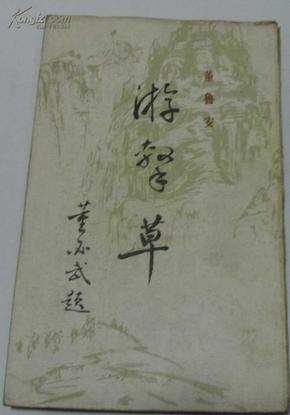 董鲁安
游击草
董必武题